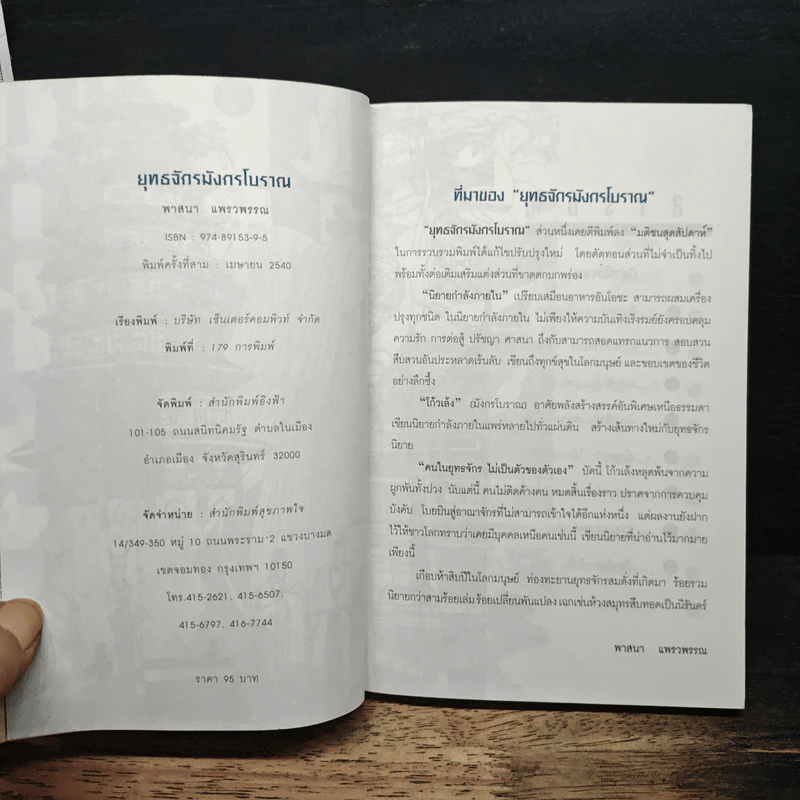 ยุทธจักรมังกรโบราณ
พาสนา แพรวพรรณ
ISBN : 974-89153-9-5
พิมพ์ครั้งที่สาม : เมษายน 2540
เรียงพิมพ์ : บริษัท เซ็นเตอร์คอมพิวท์ จำกัด
พิมพ์ที่ : 179 การพิมพ์
จัดพิมพ์ : สำนักพิมพ์อิงฟ้า
101-105 ถนนสนิทนิคมรัฐ ตำบลในเมือง
อำเภอเมือง จังหวัดสุรินทร์ 32000
จัดจำหน่าย : สำนักพิมพ์สุขภาพใจ
14/349-350 หมู่ 10 ถนนพระราม 2 แขวงบางมด
เขตจอมทอง กรุงเทพฯ 10150
โทร.415-2621, 415-6507,
415-6797, 416-7744
ราคา 95 บาท
ที่มาของ “ยุทธจักรมังกรโบราณ”
“ยุทธจักรมังกรโบราณ” ส่วนหนึ่งเคยตีพิมพ์ลง “มติชนสุดสัปดาห์”
ในการรวบรวมพิมพ์ได้แก้ไขปรับปรุงใหม่ โดยตัดทอนส่วนที่ไม่จำเป็นทิ้งไป
พร้อมทั้งต่อเติมเสริมแต่งส่วนที่ขาดตกบกพร่อง
“นิยายกำลังภายใน” เปรียบเสมือนอาหารอันโอชะ สามารถผสมเครื่อง
ปรุงทุกชนิด ในนิยายกำลังภายใน ไม่เพียงให้ความบันเทิงเริงรมย์ยังครอบคลุม
ความรัก การต่อสู้ ปรัชญา ศาสนา ถึงกับสามารถสอดแทรกแนวการ สอบสวน
สืบสวนอันประหลาดเร้นลับ เขียนถึงทุกข์สุขในโลกมนุษย์ และขอบเขตของชีวิต
อย่างลึกซึ้ง
“โก้วเล้ง” (มังกรโบราณ) อาศัยพลังสร้างสรรค์อันพิเศษเหนือธรรมดา
เขียนนิยายกำลังภายในแพร่หลายไปทั่วแผ่นดิน สร้างเส้นทางใหม่กับยุทธจักร
นิยาย
“คนในยุทธจักร ไม่เป็นตัวของตัวเอง” บัดนี้ โก้วเล้งหลุดพ้นจากความ
ผูกพันทั้งปวง นับแต่นี้ คนไม่ติดค้างคน หมดสิ้นเรื่องราว ปราศจากการควบคุม
บังคับ โบยบินสู่อาณาจักรที่ไม่สามารถเข้าใจได้อีกแห่งหนึ่ง แต่ผลงานยังฝาก
ไว้ให้ชาวโลกทราบว่าเคยมีบุคคลเหนือคนเช่นนี้ เขียนนิยายที่น่าอ่านไว้มากมาย
เพียงนี้
เกือบห้าสิบปีในโลกมนุษย์ ท่องทะยานยุทธจักรสมดั่งที่เกิดมา ร้อยรวม
นิยายกว่าสามร้อยเล่ม ร้อยเปลี่ยนพันแปลง เฉกเช่นห้วงสมุทรสืบทอดเป็นนิรันดร์
พาสนา แพรวพรรณ